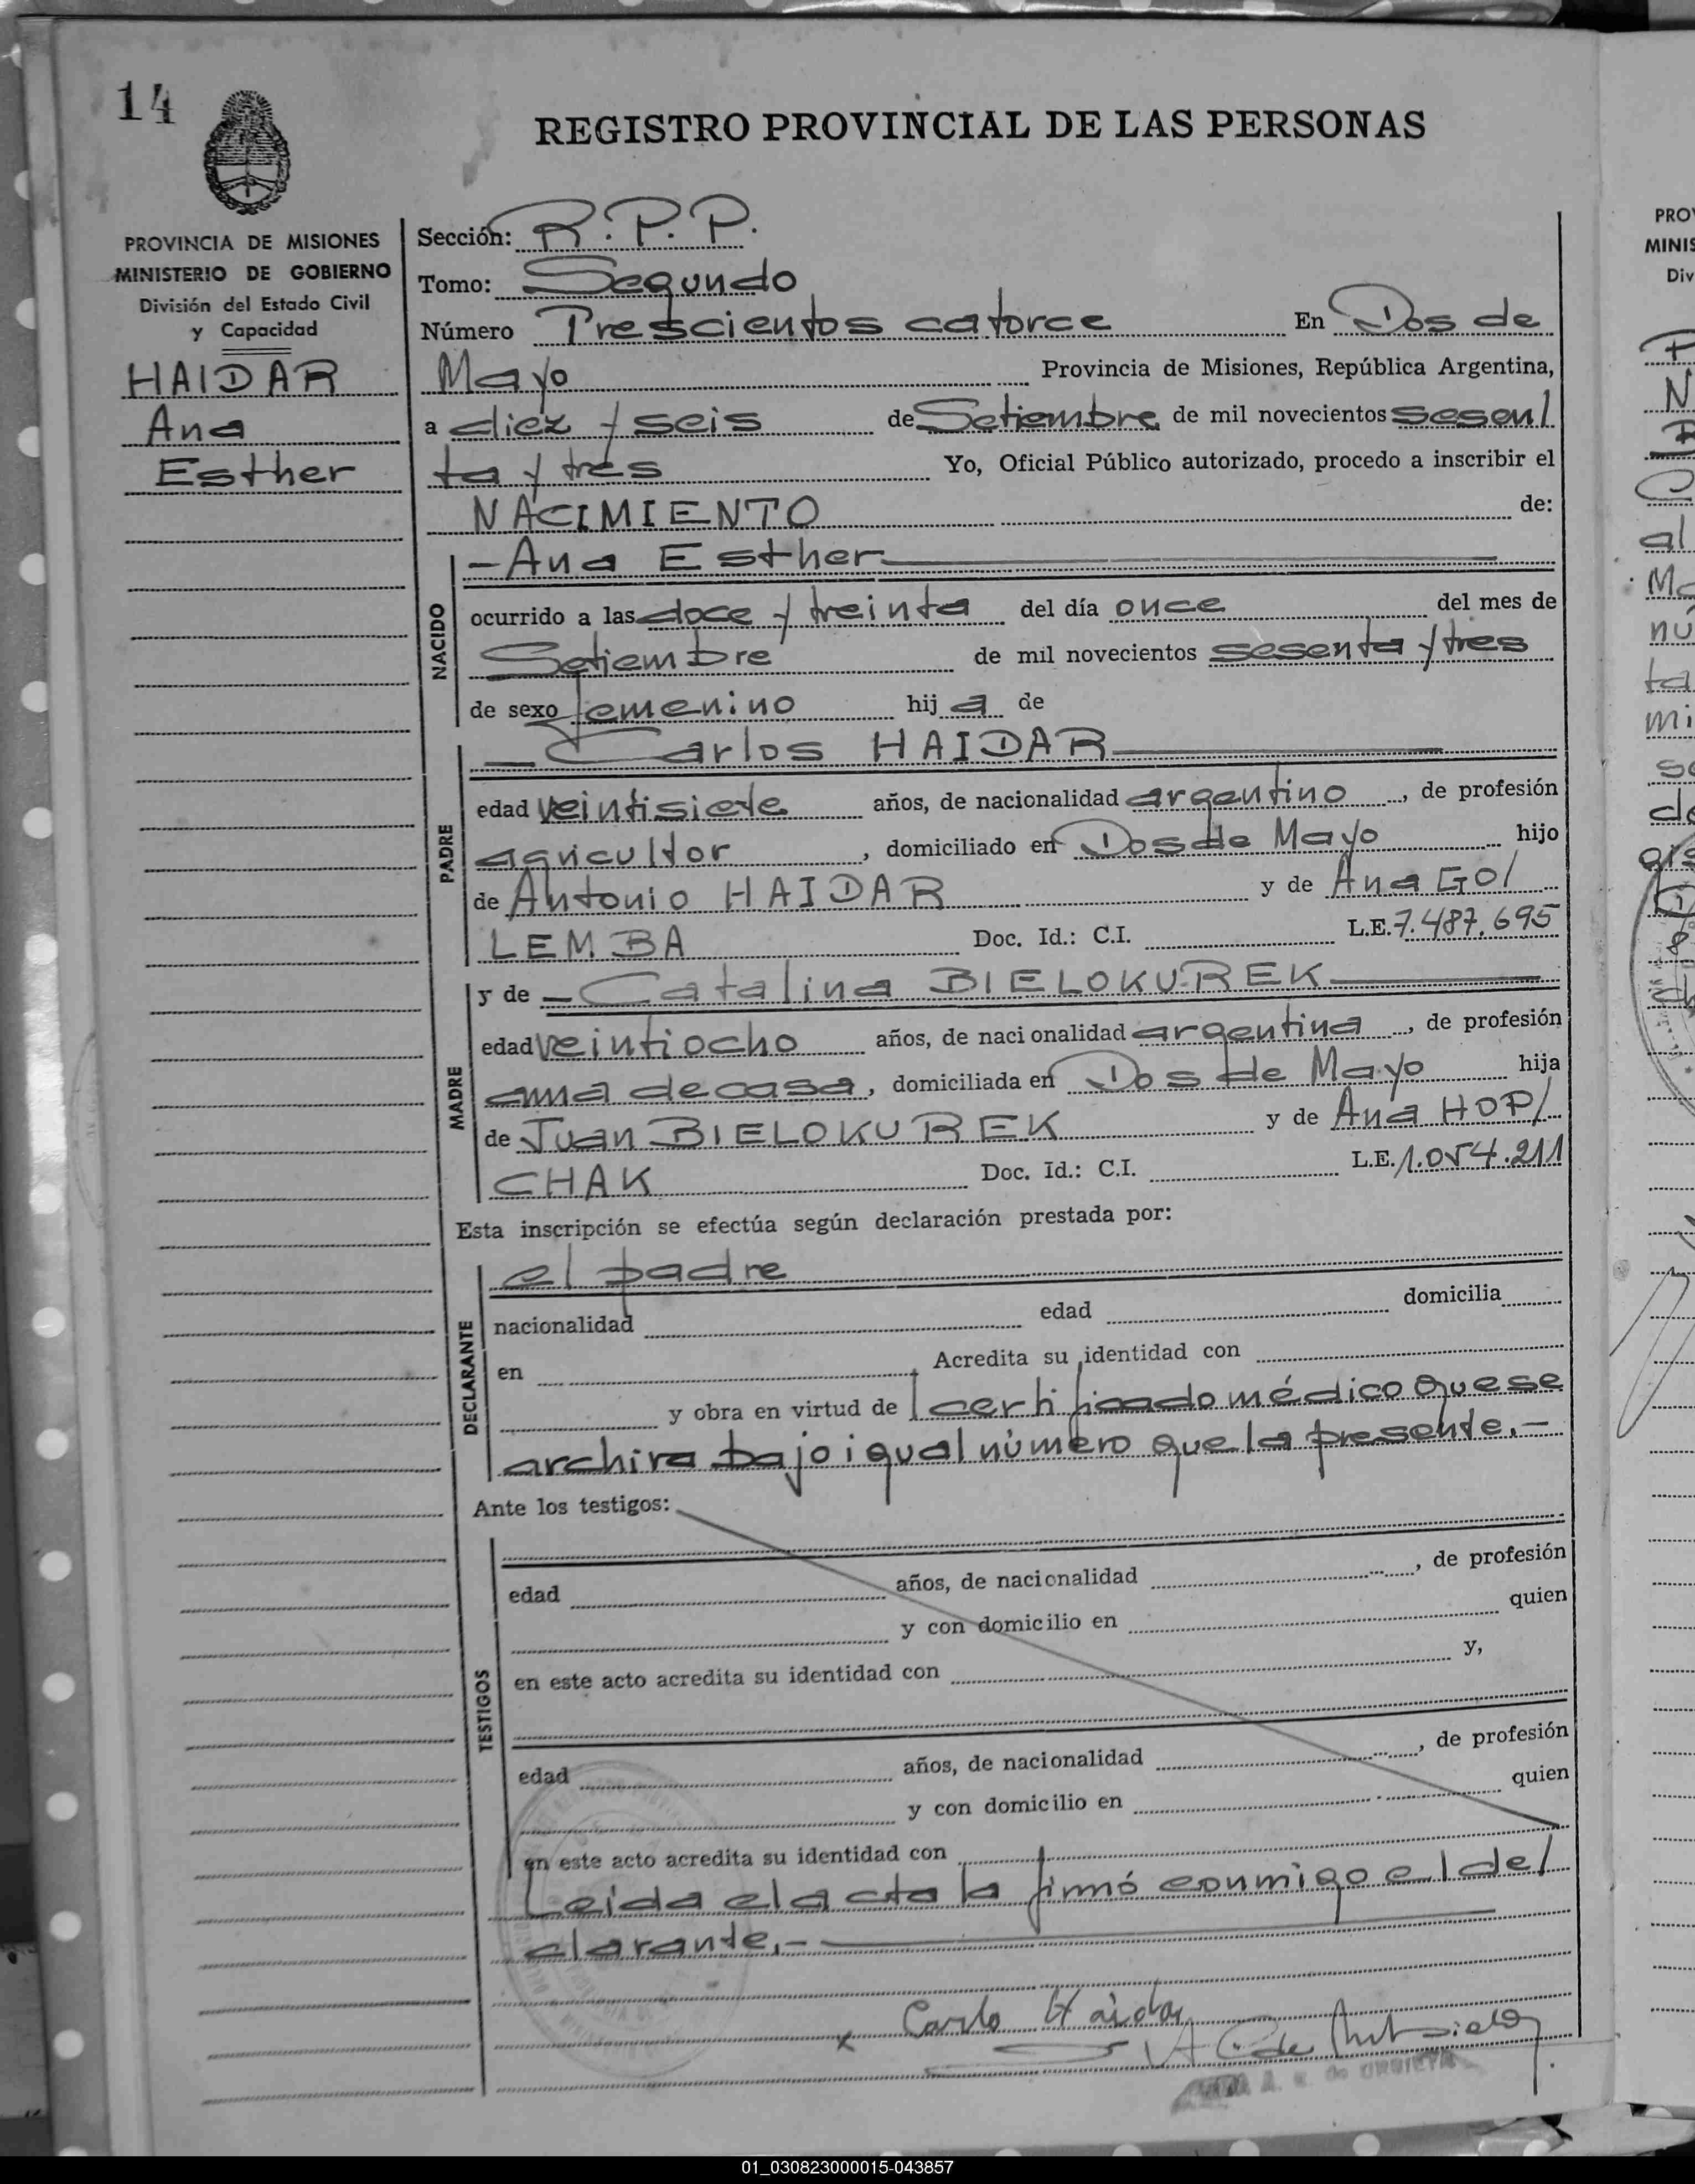 14
REGISTRO PROVINCIAL DE LAS PERSONAS
PROVINCIA DE MISIONES
MINISTERIO DE GOBIERNO
División del Estado Civil
y Capacidad
HAIDAR
Ana
Esther
Sección: R.P.P.
Tomo: Segundo
Número Trescientos catorce En Dos de
Mayo Provincia de Misiones, República Argentina,
a diez y seis de Setiembre de mil novecientos sesen/
ta y tres Yo, Oficial Público autorizado, procedo a inscribir el
NACIMIENTO de:
NACIDO
—Ana Esther
ocurrido a las doce y treinta del día once del mes de
Setiembre de mil novecientos sesenta y tres
de sexo femenino hija de
PADRE
— Carlos HAIDAR
edad veintisiete años, de nacionalidad argentino, de profesión
agricultor, domiciliado en Dos de Mayo hijo
de Antonio HAIDAR y de Ana GO/
LEMBA Doc. Id.: C.I. L.E. 7.487.695
MADRE
y de — Catalina BIELOKUREK
edad veintiocho años, de nacionalidad argentina, de profesión
ama de casa, domiciliada en Dos de Mayo hija
de Juan BIELOKUREK y de Ana HOP/
CHAK Doc. Id.: C.I. L.E. 1.054.211
Esta inscripción se efectúa según declaración prestada por:
DECLARANTE
el padre
nacionalidad edad domicilia
en Acredita su identidad con
y obra en virtud de l certificado médico que se
archiva bajo igual número que la presente.—
Ante los testigos:
TESTIGOS
edad años, de nacionalidad , de profesión
y con domicilio en quien
en este acto acredita su identidad con y,
edad años, de nacionalidad , de profesión
y con domicilio en quien
en este acto acredita su identidad con
Leida el acta la firmó conmigo el de/
clarante.—
x Carlo Haidar
PRO
MINIS
Div
01_030823000015-043857